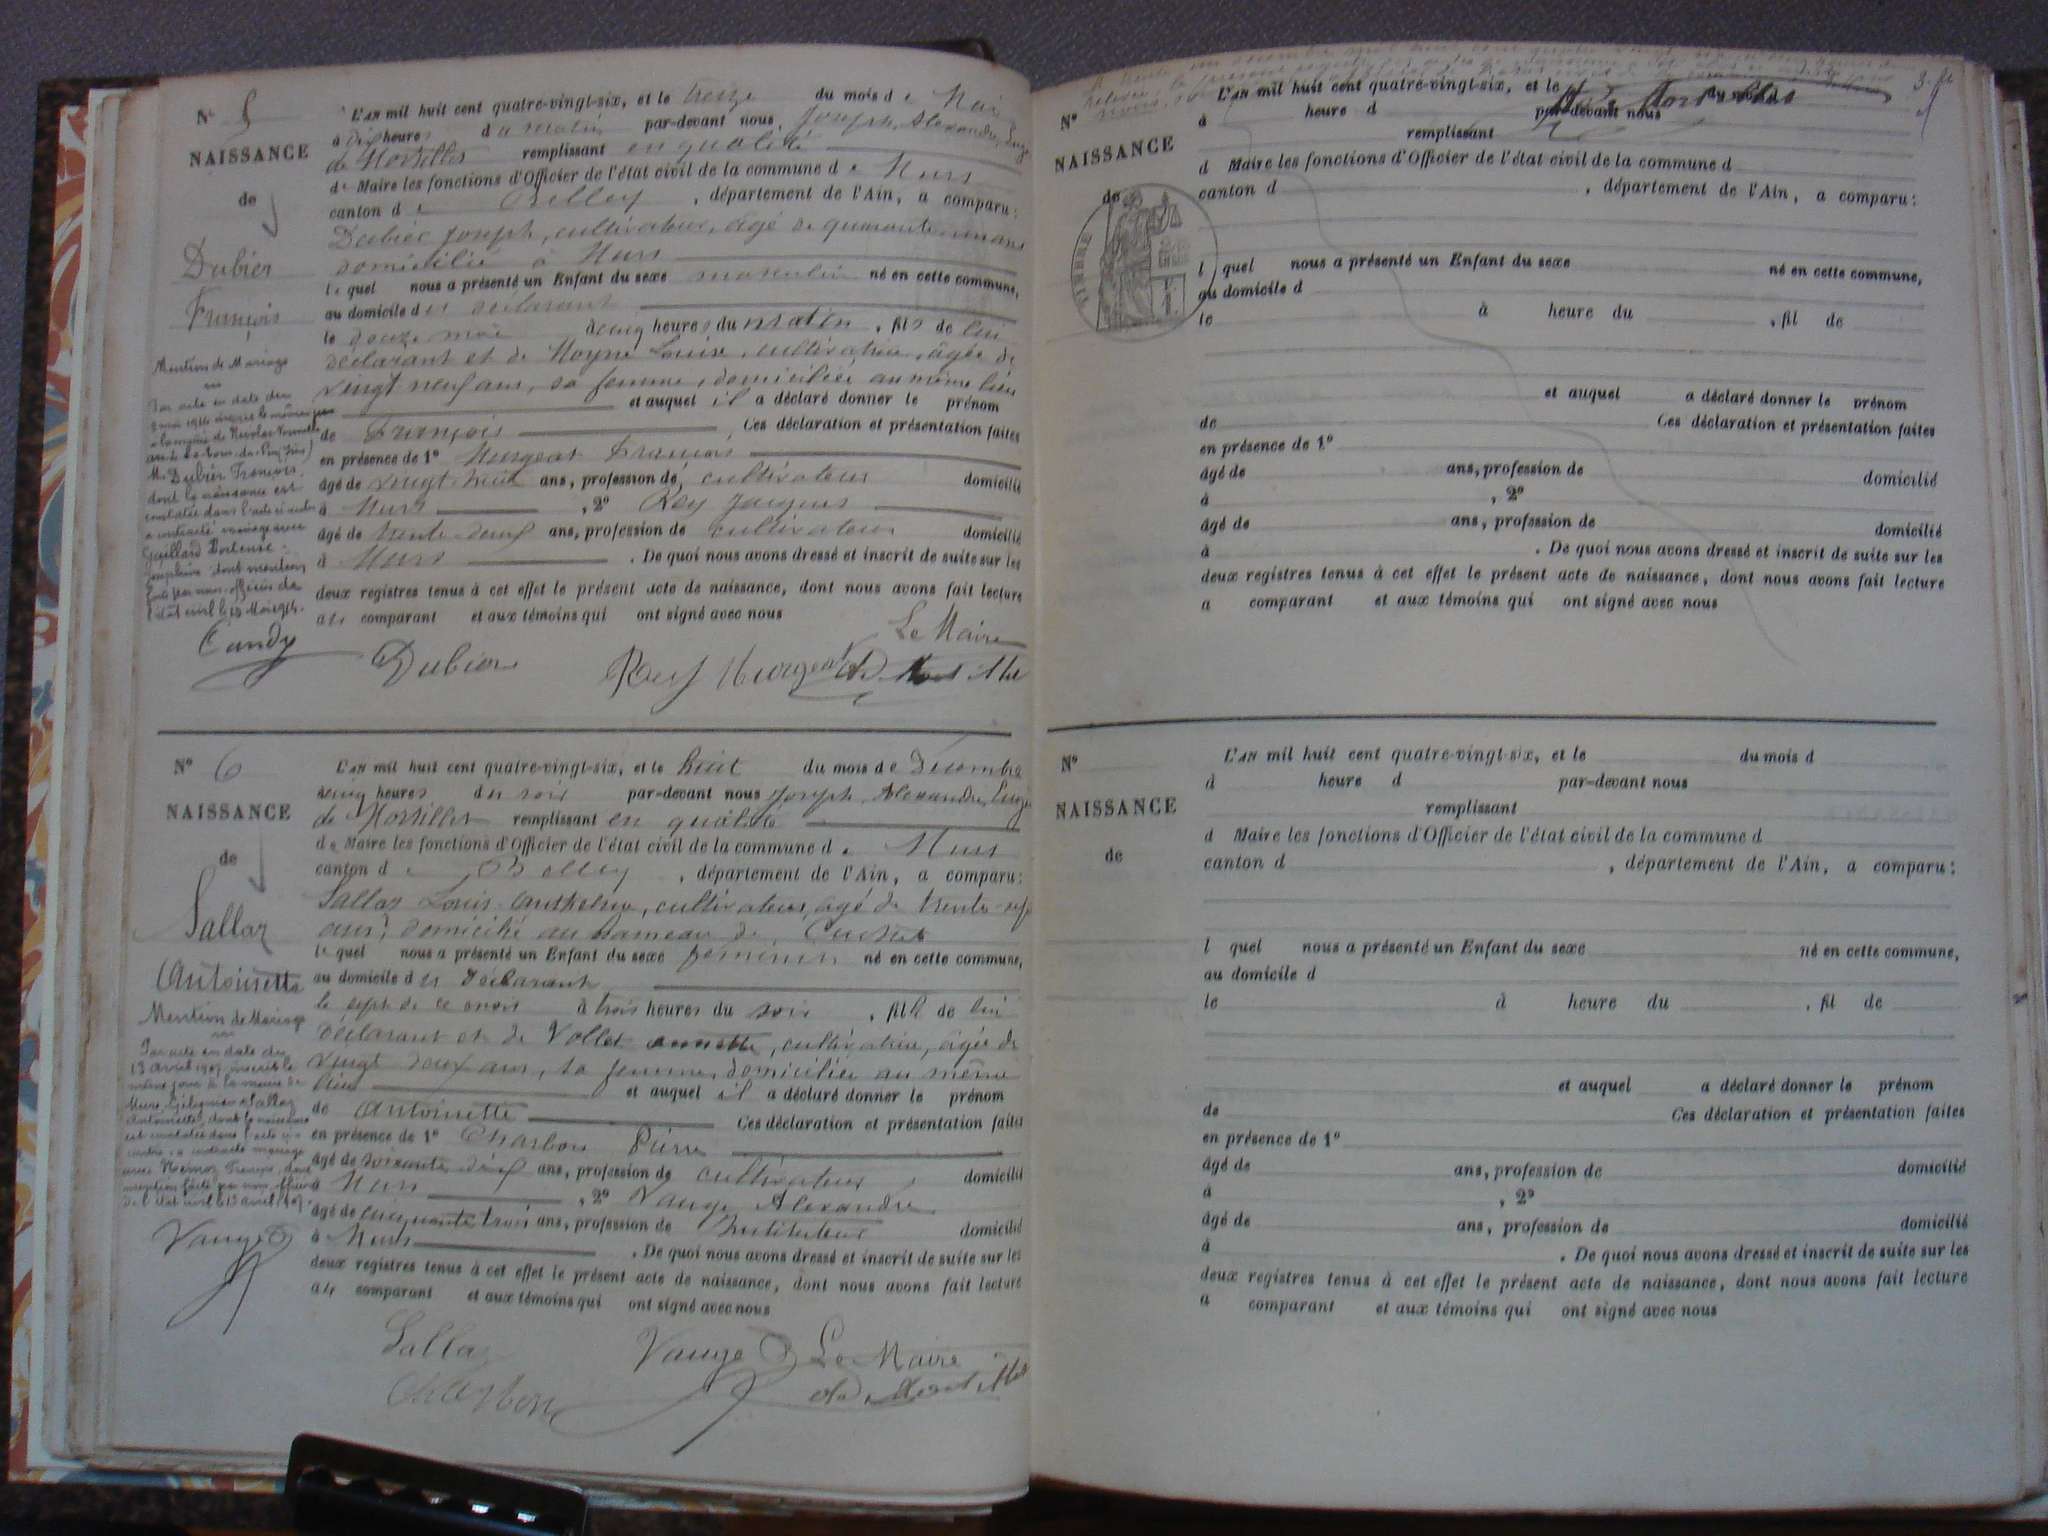 N° 5
NAISSANCE
de
Dubier
François
Mention de Mariage
Par acte en date du
M. Dubier François
dont la naissance est
constatée dans l'acte ci contre
a contracté mariage avec
Guillard Hortense
Joséphine dont mention
faite par nous officier de
l'état civil le
Candy
L'AN mil huit cent quatre-vingt-six, et le treize du mois de Mai
à dix heures du matin par-devant nous Joseph, Alexandre, Eugè
de Mortillet remplissant en qualité
de Maire les fonctions d'Officier de l'état civil de la commune de Murs
canton de Belley, département de l'Ain, a comparu:
Dubier Joseph, cultivateur, âgé de quarante un ans
domicilié à Murs
lequel nous a présenté un Enfant du sexe masculin né en cette commune,
au domicile du déclarant
le douze mai à cinq heures du matin, fils de lui
déclarant et de Moyne Louise, cultivatrice, âgée de
vingt neuf ans, sa femme, domiciliée au même lieu
et auquel il a déclaré donner le prénom
de François Ces déclaration et présentation faites
en présence de 1° Murgeat François
âgé de vingt huit ans, profession de cultivateur domicilié
à Murs, 2° Rey Jacques
âgé de trente deux ans, profession de cultivateur domicilié
à Murs. De quoi nous avons dressé et inscrit de suite sur les
deux registres tenus à cet effet le présent acte de naissance, dont nous avons fait lecture
au comparant et aux témoins qui ont signé avec nous
Le Maire
Dubier Rey Murgeat de Mortillet
N° 6
NAISSANCE
de
Sallaz
Antoinette
Mention de Mariage
Par acte en date du
13 avril 1907 inscrit le
même jour à la mairie de
Antoinette, dont la naissance
est constatée dans l'acte ci
contre a contracté mariage
mention faite par nous officier
de l'état civil le 13 avril 1907.
Vauge
L'AN mil huit cent quatre-vingt-six, et le huit du mois de Décembre
à cinq heures du soir par-devant nous Joseph, Alexandre, Eugè
de Mortillet remplissant en qualité
de Maire les fonctions d'Officier de l'état civil de la commune de Murs
canton de Belley, département de l'Ain, a comparu:
Sallaz Louis Anthelme, cultivateur, âgé de trente-sept
ans, domicilié au hameau de Cuchet
lequel nous a présenté un Enfant du sexe féminin né en cette commune,
au domicile du Déclarant
le sept de ce mois à trois heures du soir, fille de lui
déclarant et de Vollet annette, cultivatrice, âgée de
vingt deux ans, sa femme, domiciliée au même
lieu et auquel il a déclaré donner le prénom
de Antoinette Ces déclaration et présentation faites
en présence de 1° Charbon Pierre
âgé de soixante dix ans, profession de cultivateur, domicilié
à Murs, 2° Vauge Alexandre
âgé de cinquante trois ans, profession de Instituteur domicilié
à Murs. De quoi nous avons dressé et inscrit de suite sur les
deux registres tenus à cet effet le présent acte de naissance, dont nous avons fait lecture
au comparant et aux témoins qui ont signé avec nous
Salla Vauge Le Maire
Charbon de Mortillet
N°
NAISSANCE
de
TIMBRE
L'AN mil huit cent quatre-vingt-six, et le du mois d
à heure d par-devant nous
remplissant
d Maire les fonctions d'Officier de l'état civil de la commune d
canton d , département de l'Ain, a comparu:
l quel nous a présenté un Enfant du sexe né en cette commune,
au domicile d
le à heure du , fil de
et auquel a déclaré donner le prénom
de Ces déclaration et présentation faites
en présence de 1°
âgé de ans, profession de domicilié
à , 2°
âgé de ans, profession de domicilié
à . De quoi nous avons dressé et inscrit de suite sur les
deux registres tenus à cet effet le présent acte de naissance, dont nous avons fait lecture
a comparant et aux témoins qui ont signé avec nous
N°
NAISSANCE
de
L'AN mil huit cent quatre-vingt-six, et le du mois d
à heure d par-devant nous
remplissant
d Maire les fonctions d'Officier de l'état civil de la commune d
canton d , département de l'Ain, a comparu:
l quel nous a présenté un Enfant du sexe né en cette commune,
au domicile d
le à heure du , fil de
et auquel a déclaré donner le prénom
de Ces déclaration et présentation faites
en présence de 1°
âgé de ans, profession de domicilié
à , 2°
âgé de ans, profession de domicilié
à . De quoi nous avons dressé et inscrit de suite sur les
deux registres tenus à cet effet le présent acte de naissance, dont nous avons fait lecture
a comparant et aux témoins qui ont signé avec nous